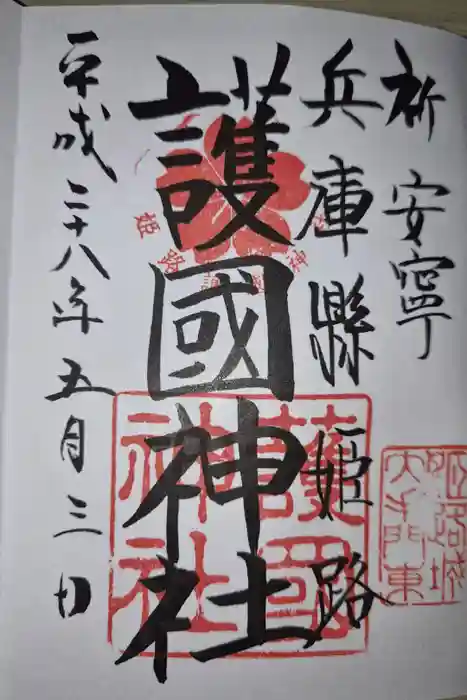 祈安寧
兵庫縣姫路
護國神社
平成二十八年五月三日
護國
神社
姫路城
大手門東